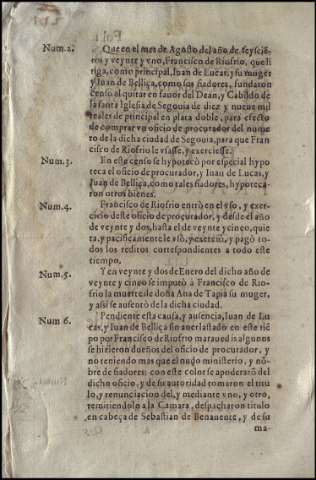 Num.2. Que en el mes de Agosto del año de seyscié-
tos y veynte y vno, Francisco de Riofrio, que li
tiga, como principal, Iuan de Lucas, y su muger
y Iuan de Belliça, como sus fiadores, fundaron
censo al quitar en fauor del Dean, y Cabildo de
la santa Iglesia de Segouia de diez y nueue mil
reales de principal en plata doble, para efecto
de comprar vn oficio de procurador del nume
ro de la dicha ciudad de Segouia, para que Fran
cisco de Riofrio le vsasse, y exerciesse.
Num.3. En este censo se hypotecò por especial hypo
teca el oficio de procurador, y Iuan de Lucas, y
Iuan de Belliça, como tales fiadores, hypoteca-
ron otros bienes.
Num.4. Francisco de Riofrio entrò en el vso, y exer-
cicio deste oficio de procurador, y desde el año
de veynte y dos, hasta el de veynte y cinco, quie
ta, y pacificamente le vsò, y exerciò, y pagò to-
dos los reditos correspondientes a todo este
tiempo.
Num.5. Y en veynte y dos de Enero del dicho año de
veynte y cinco se imputò à Francisco de Rio-
frio la muerte de doña Ana de Tapia su muger,
y assi se ausentò de la dicha ciudad.
Num 6. Pendiente esta causa, y ausencia, Iuan de Lu
cas, y Iuan de Belliça sin auer lastado en este tié
po por Francisco de Riofrio marauedis algunos
se hizieron dueños del oficio de procurador, y
no teniendo mas que el nudo ministerio, y nõ-
bre de fiadores: con este color se apoderarõ del
dicho oficio, y de su autoridad tomaron el titu
lo, y renunciacion del, y mediante vno, y otro,
remitiendolo a la Camara, despacharon titulo
en cabeça de Sebastian de Benauente, y de su
ma-